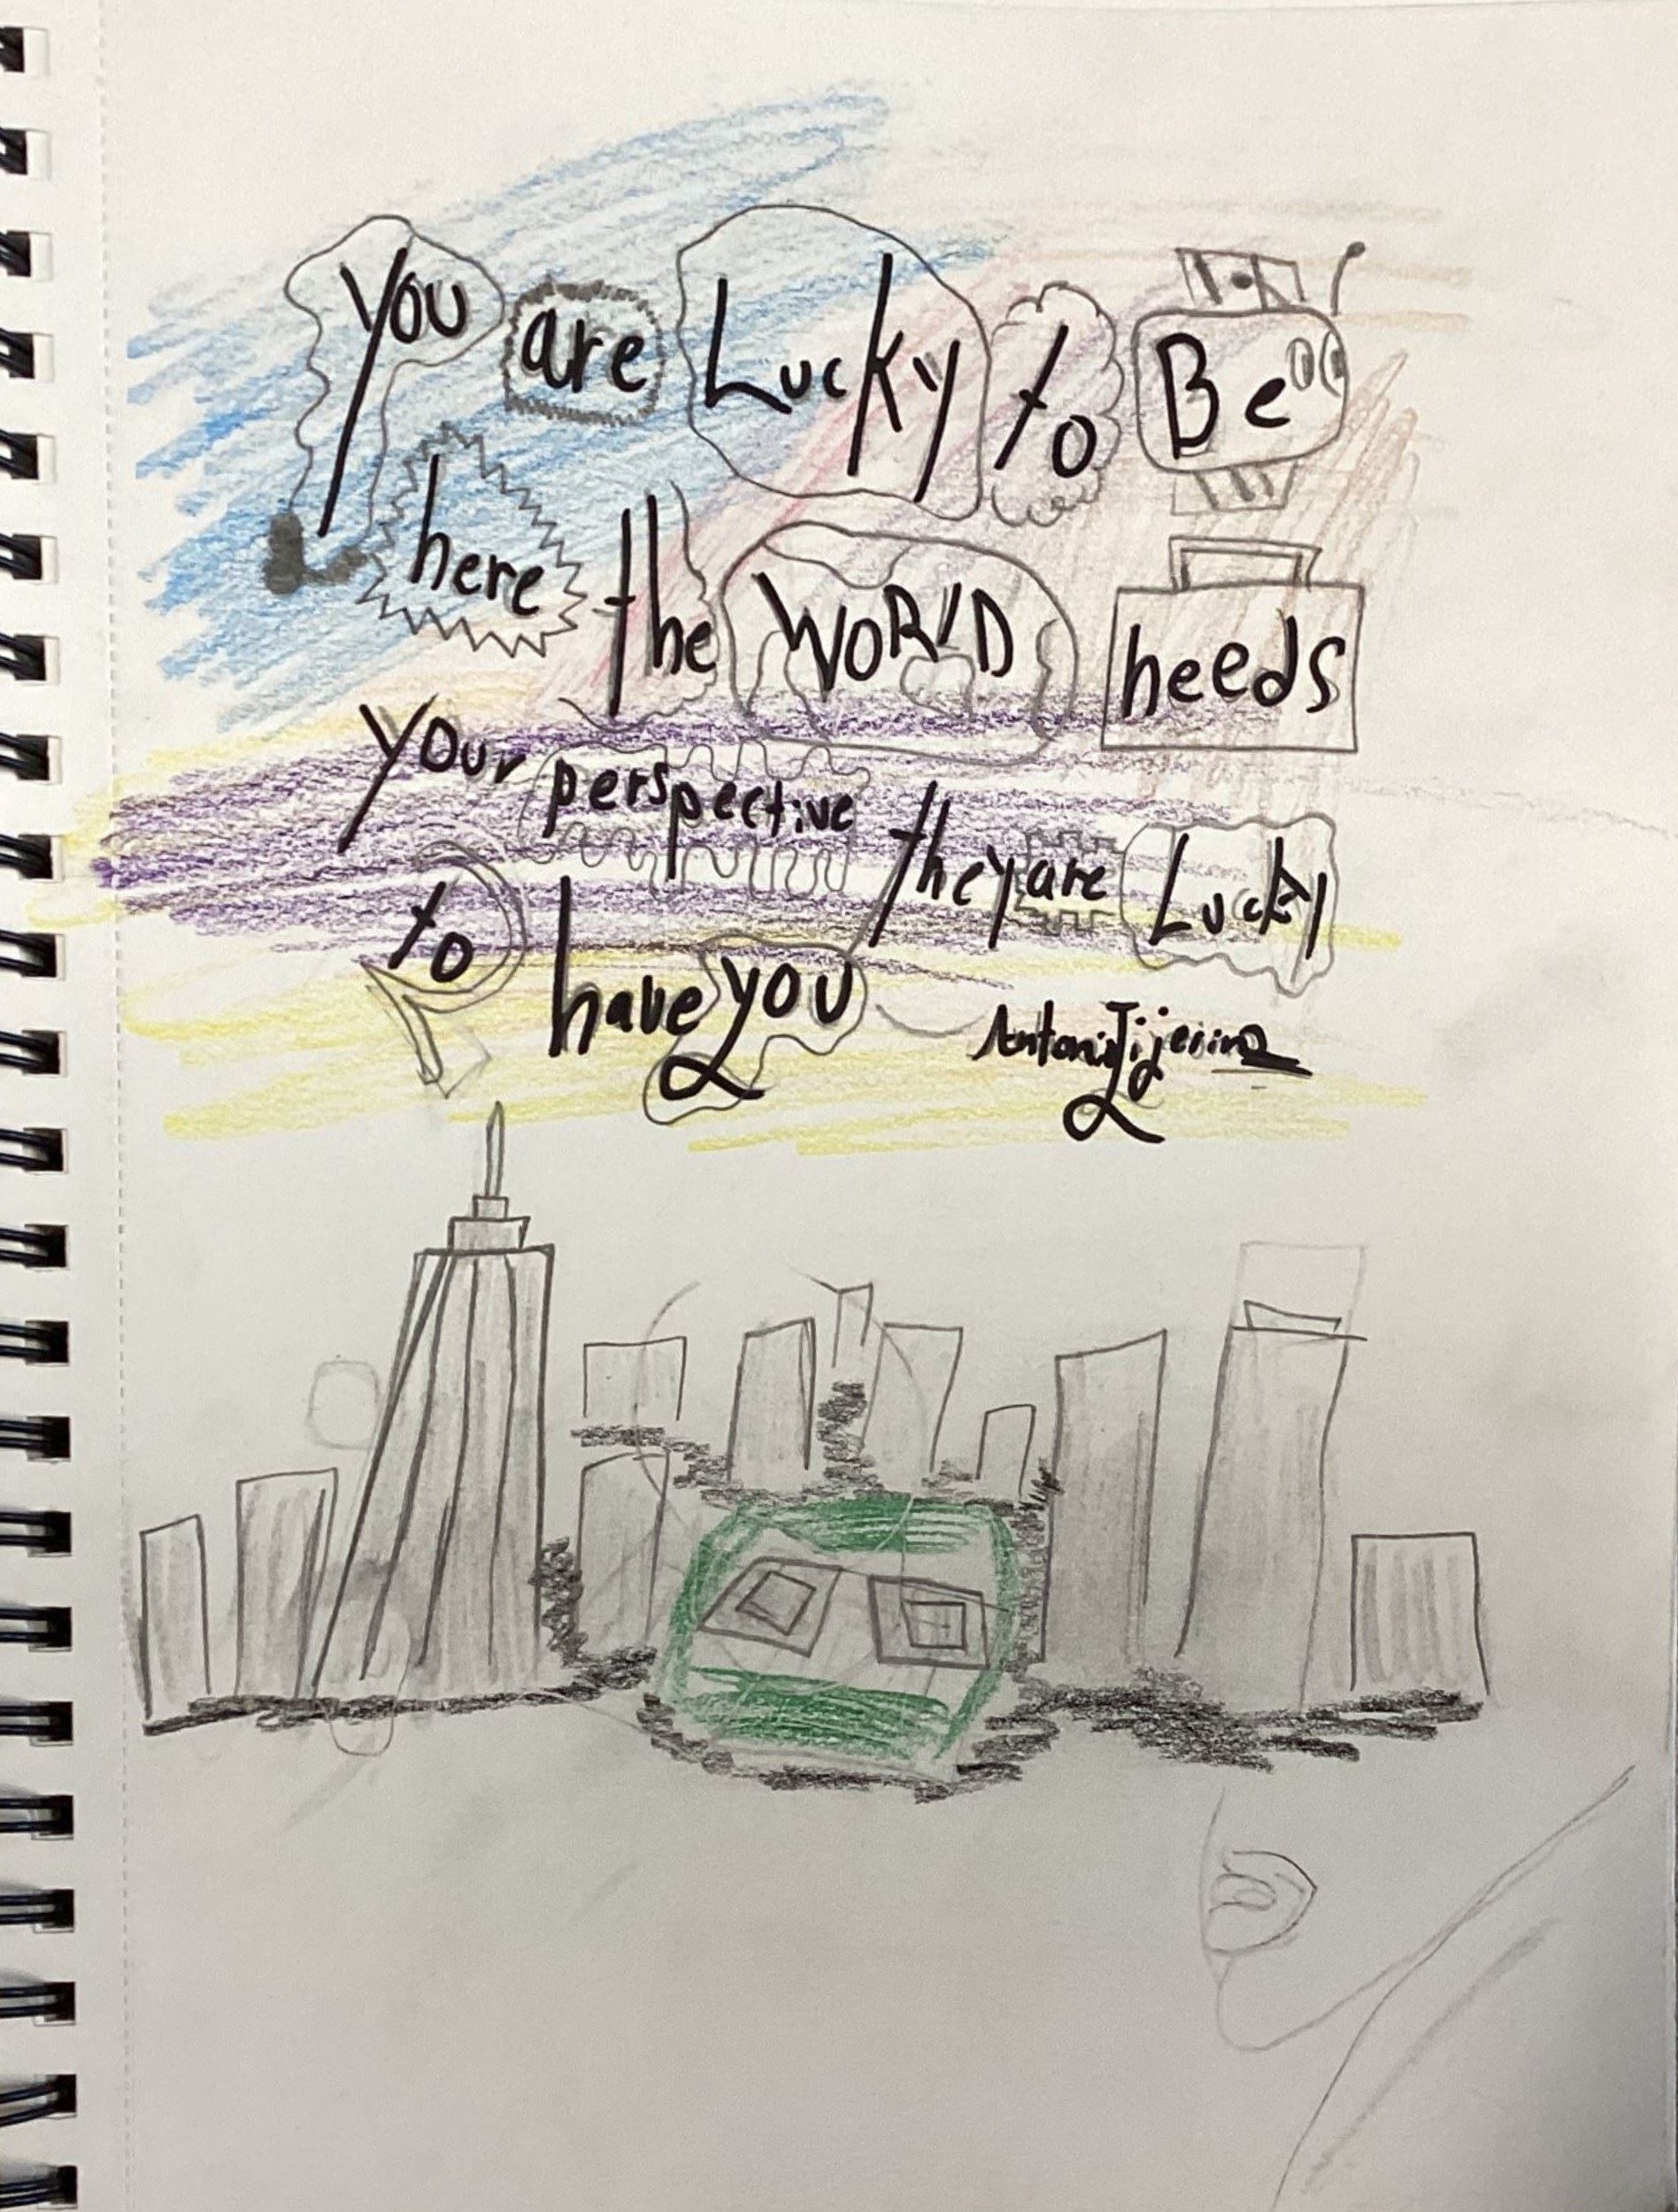 you are Lucky to Be
here the WORlD needs
your perspective they are Lucky
to have you
Antonio Tijerina